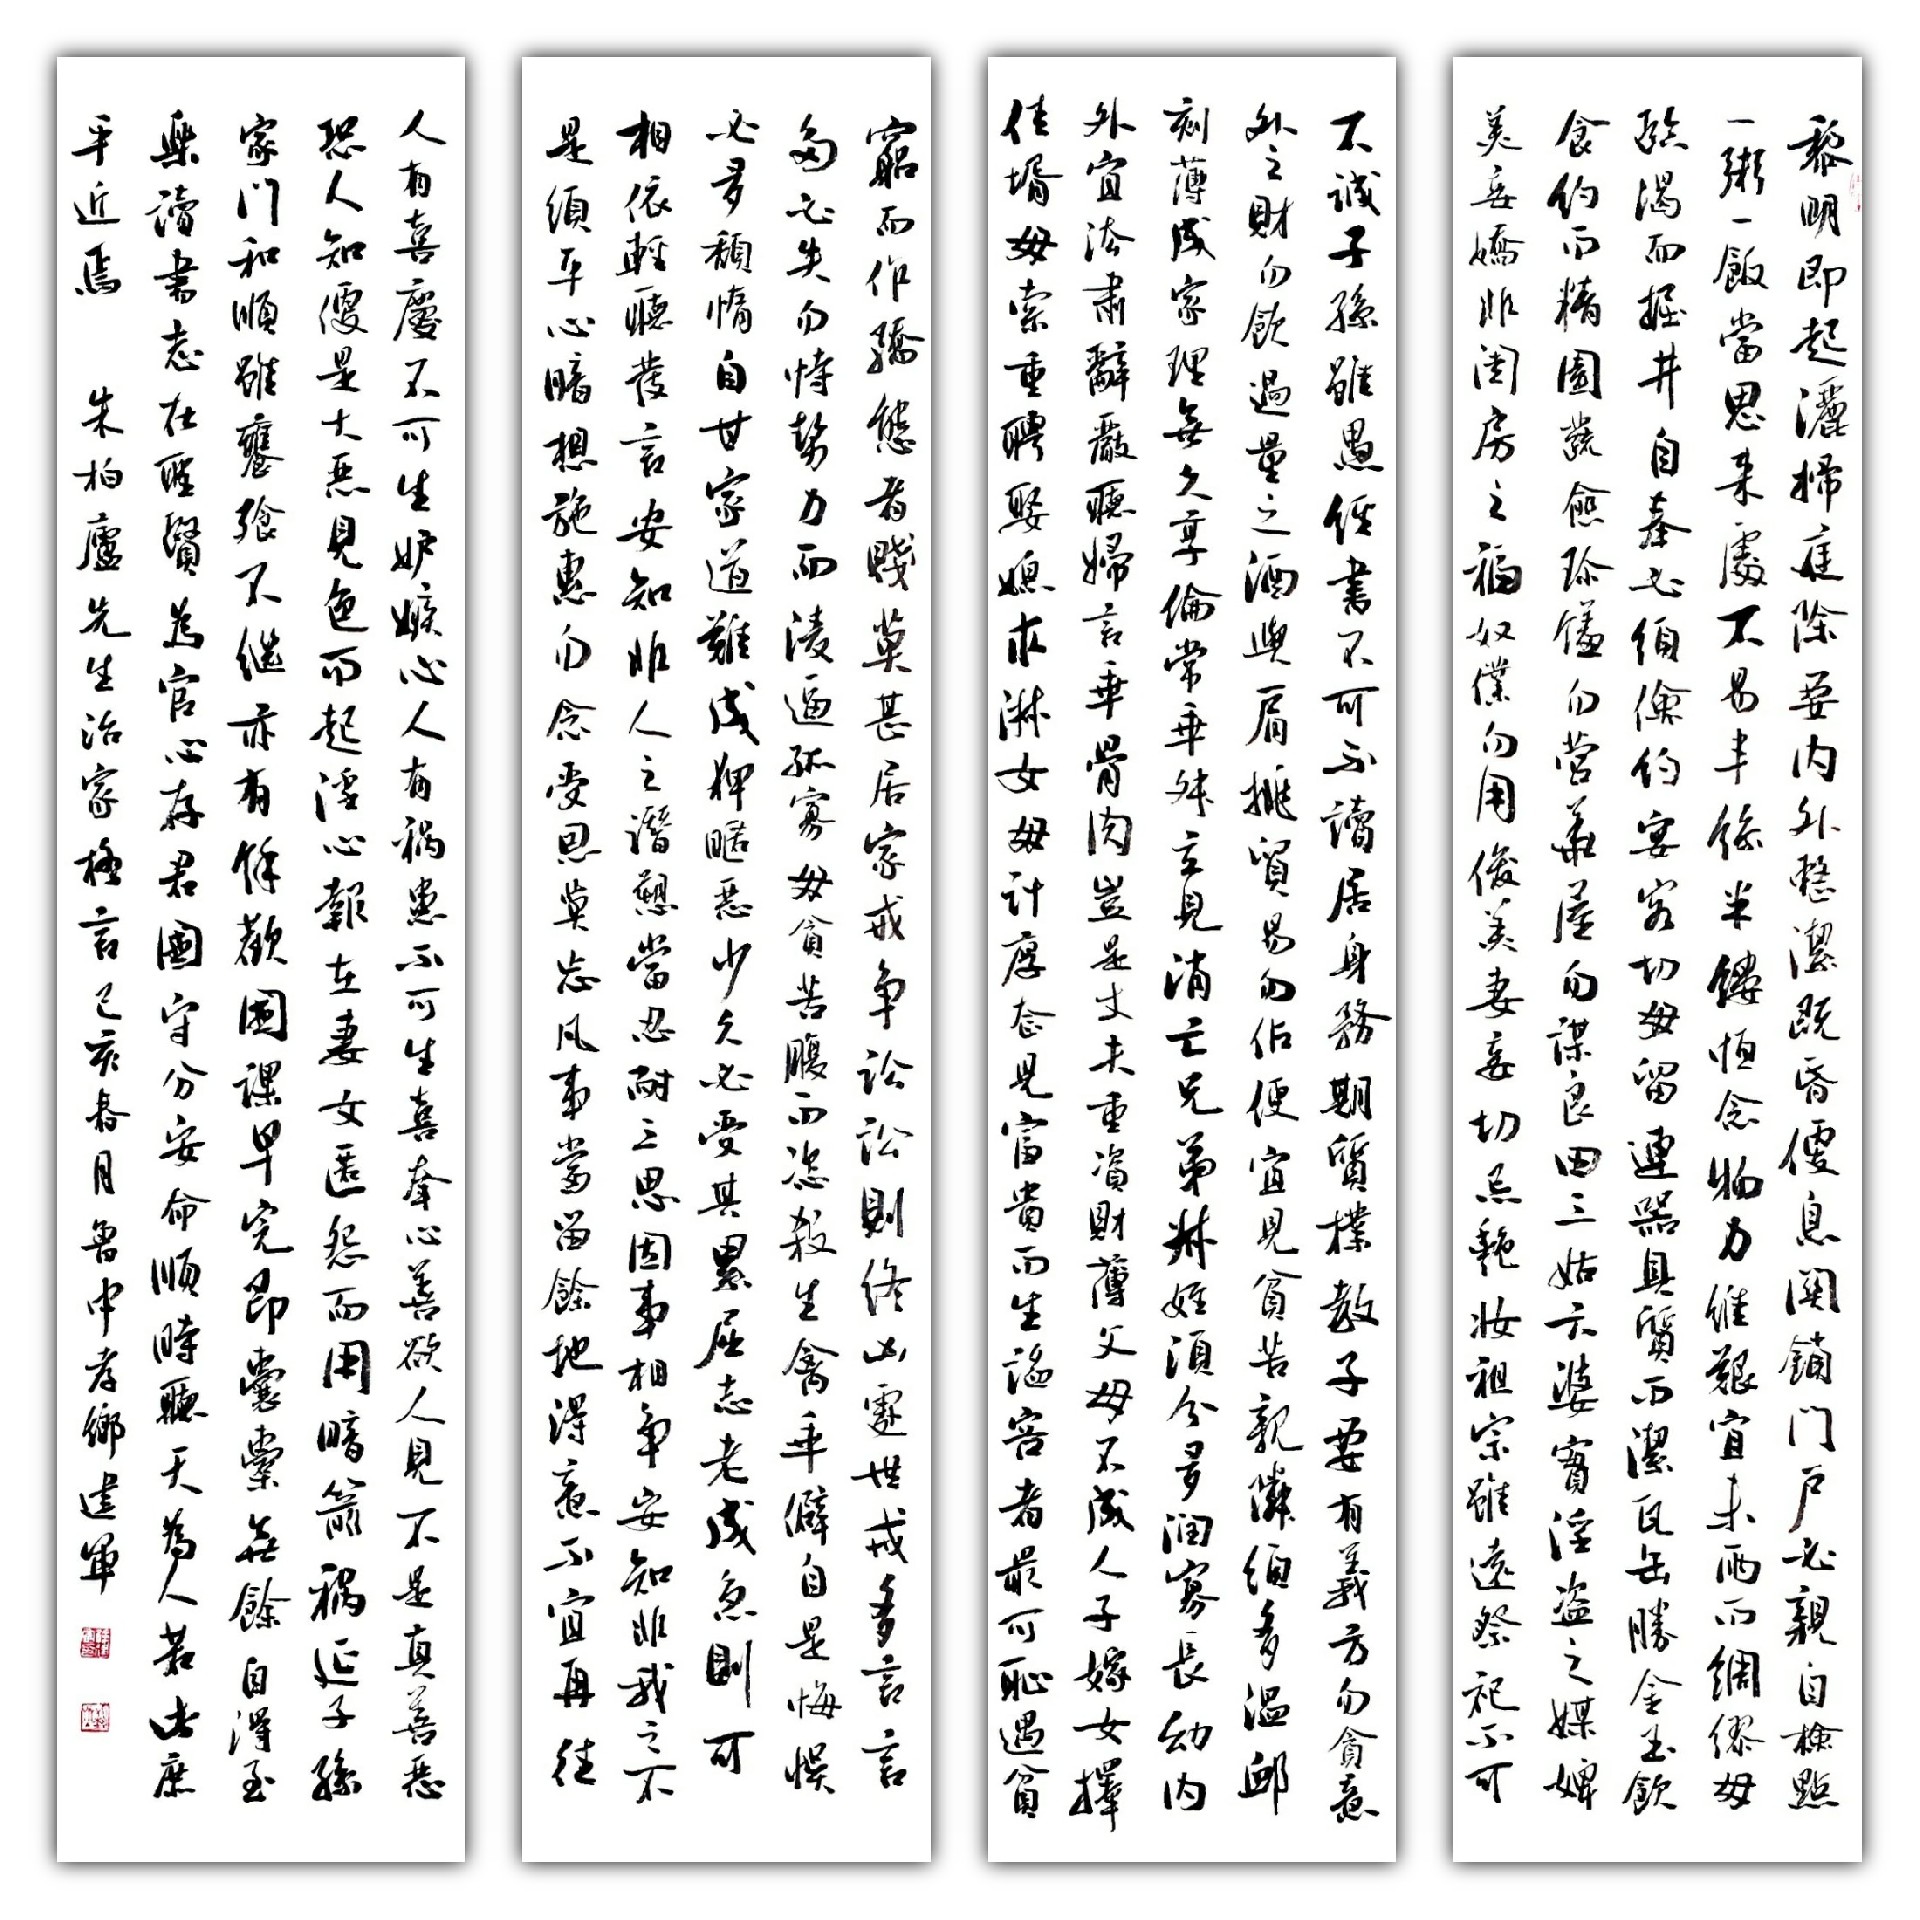 黎明即起灑掃庭除要内外整潔既昏便息関鎖门户必親自檢點
一粥一飯當思来處不易半絲半縷恒念物力維艱宜未雨而綢繆毋
臨渴而掘井自奉必須儉約宴客切毋留連器具質而潔瓦缶勝金玉飲
食約而精園蔬愈珍饈勿营華屋勿謀良田三姑六婆實淫盗之媒婢
美妾嬌非閨房之福奴僕勿用俊美妻妾切忌艶妝祖宗雖遠祭祀不可
不誠子孫雖愚經書不可不讀居身務期質樸教子要有義方勿貪意
外之財勿飲過量之酒與肩挑貿易勿佔便宜見貧苦親隣須多温邮
刻薄成家理無久享倫常乖舛立見消亡兄弟叔姪須分多润寡長幼内
外宜法肅辭嚴聽婦言乖骨肉豈是丈夫重資財薄父母不成人子嫁女擇
佳壻毋索重聘娶媳求淑女毋计厚奁見富貴而生谄容者最可恥遇貧
窮而作驕態者賤莫甚居家戒争訟訟則終凶處世戒多言言
多必失勿恃勢力而淩逼孤寡毋貧苦腹而恣殺生禽乖僻自是悔悞
必多頹惰自甘家道難成狎暱恶少久必受其累屈志老成急則可
相依輕聽發言安知非人之譖愬當忍耐三思因事相争安知非我之不
是須平心暗想施惠勿念受恩莫忘凡事當留餘地得意不宜再往
人有喜慶不可生妒嫉心人有禍患不可生喜幸心善欲人見不是真善恶
恐人知便是大恶見色而起淫心報在妻女匿怨而用暗箭禍延子孫
家门和順雖饔飧不继亦有餘歡國課早完即囊橐無餘自得至
樂讀書志在聖賢為官心存君國守分安命順時聽天為人若此庶
乎近焉 朱柏廬先生治家格言己亥春月魯中孝鄉建軍